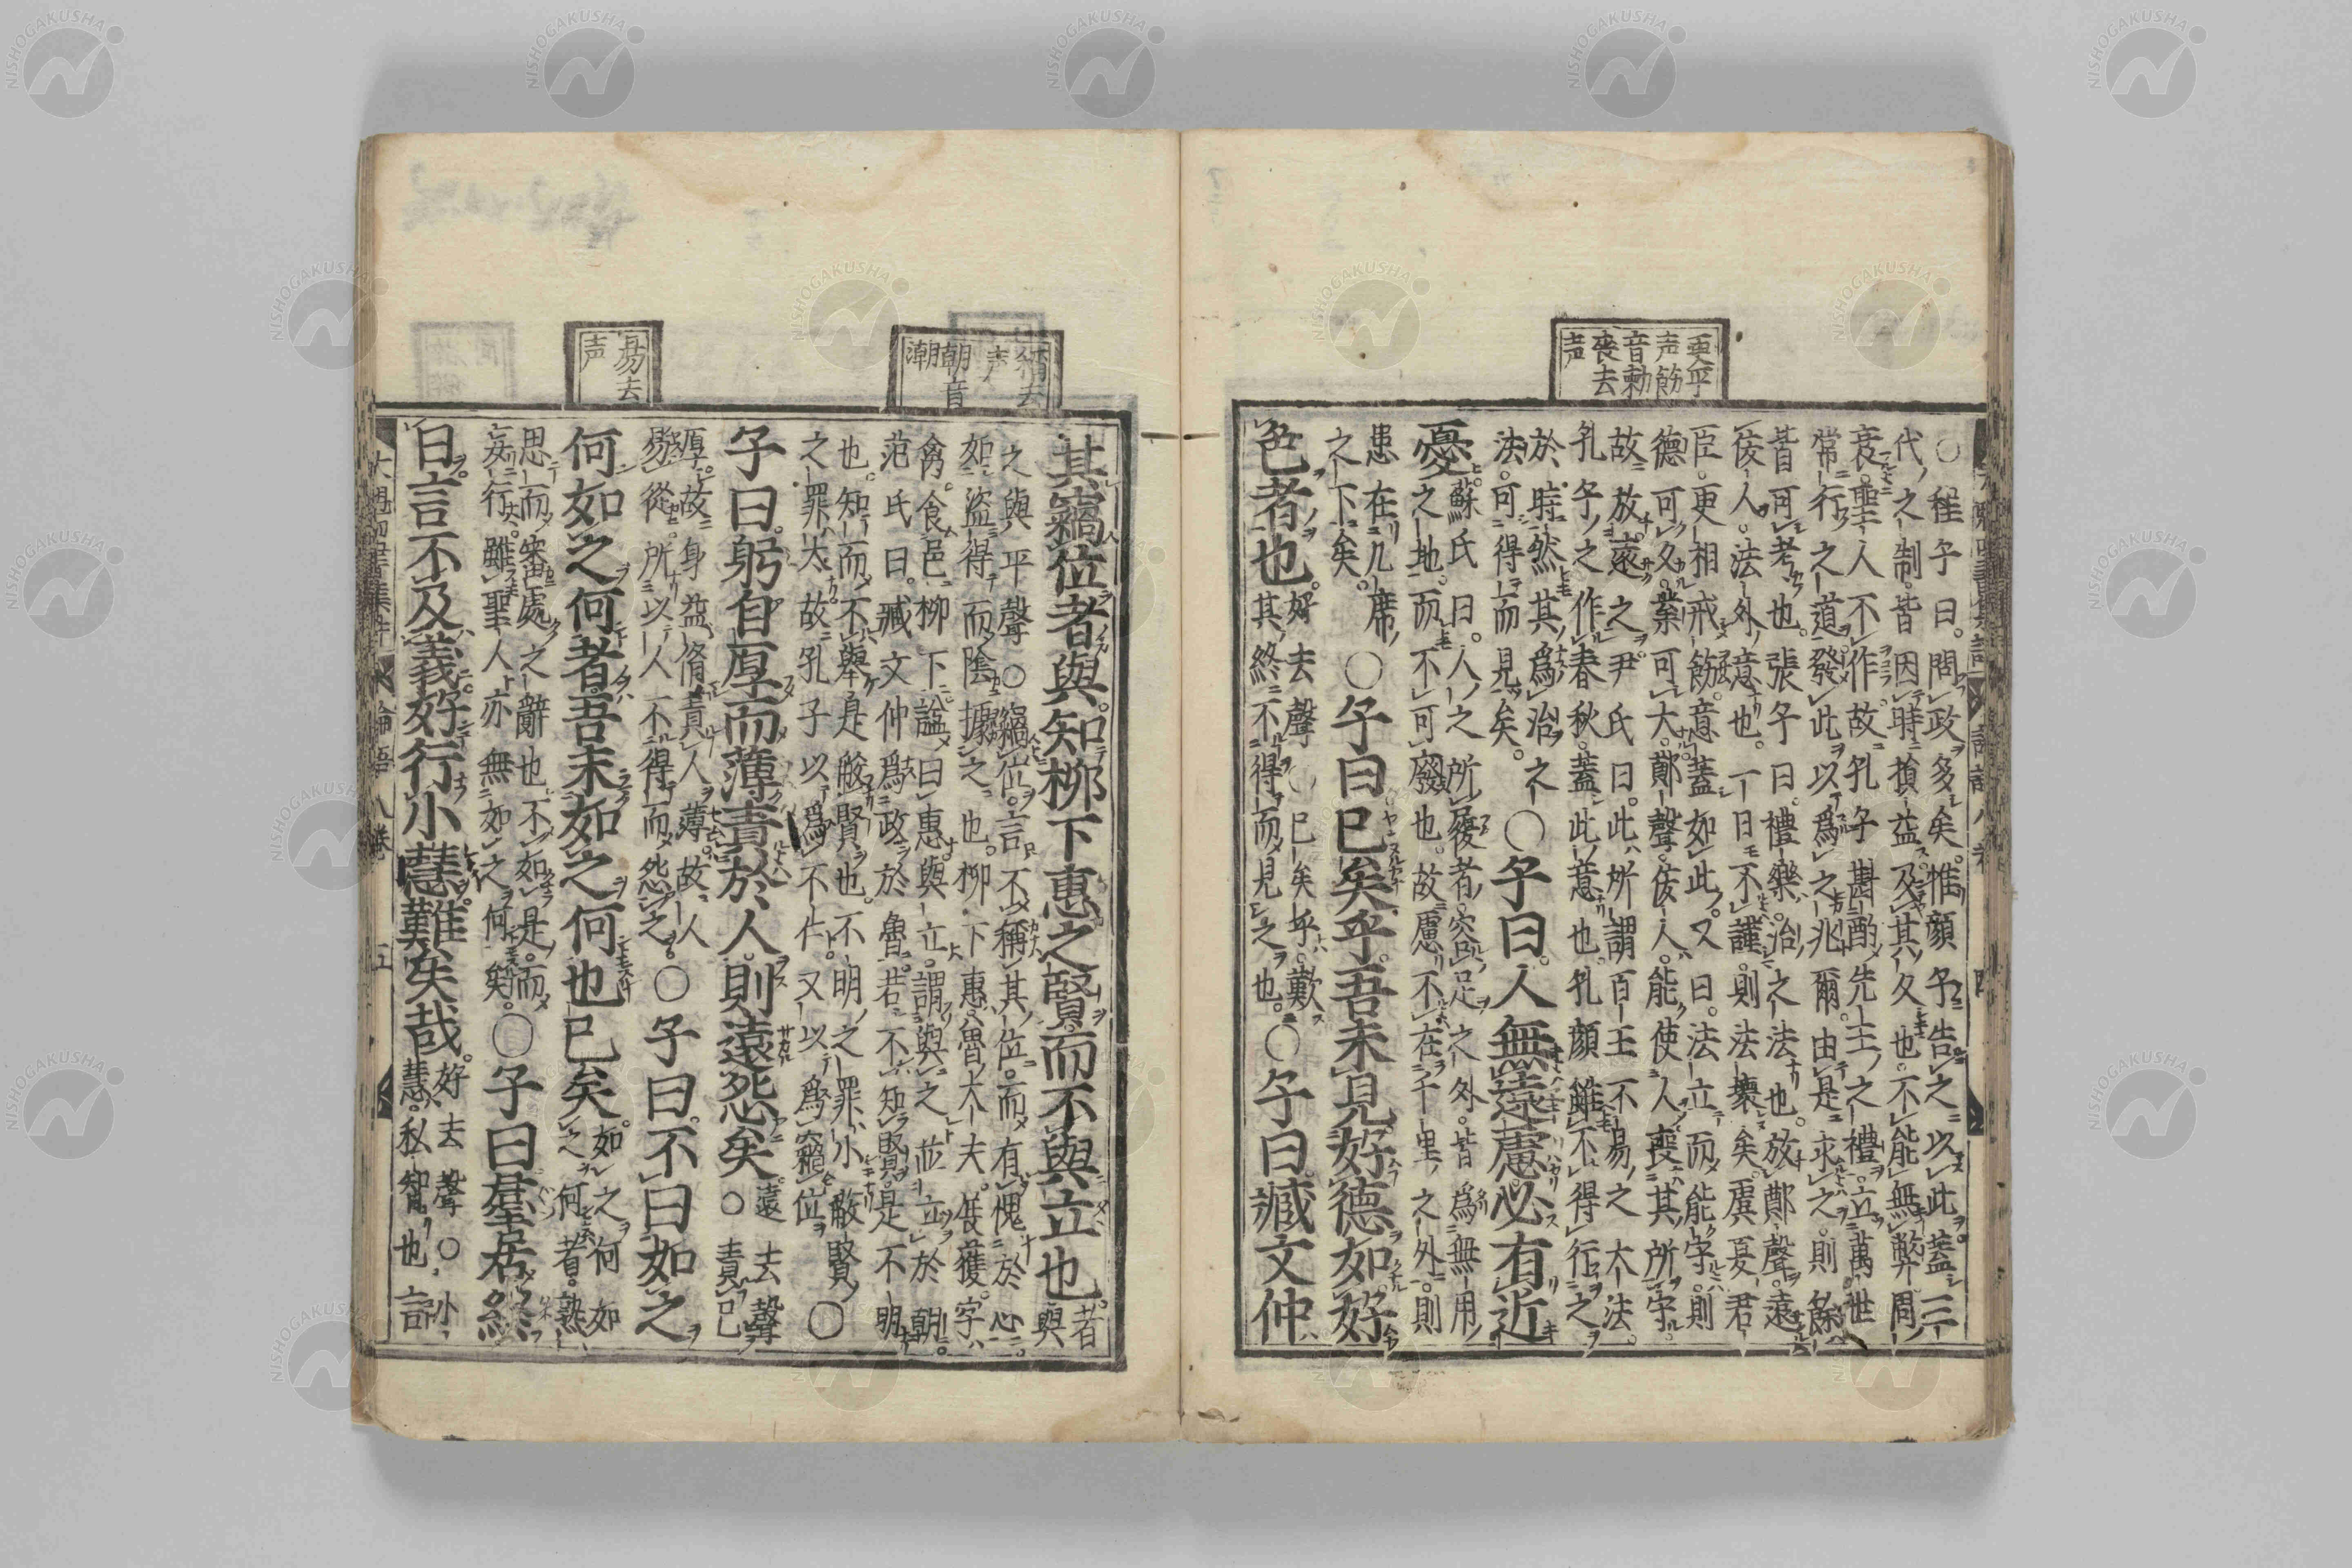 更平
声飭
音勅
喪去
声
○程子曰。問政多矣。惟顏子告之以此。蓋三
代之制。皆因時損益。及其久也。不能無弊。周
衰。聖人不作。故孔子斟酌先王之禮。立萬世
常行之道。發此以爲之兆爾。由是求之。則餘
皆可考也。張子曰。禮樂。治之法也。放鄭聲。遠
佞人。法外意也。一日不謹。則法壞矣。虞夏君
臣。更相戒飭。意蓋如此。又曰。法立而能守。則
德可久。業可大。鄭聲。佞人。能使人喪其所守。
故放遠之。尹氏曰。此所謂百王不易之大法。
孔子之作春秋。蓋此意也。孔顏雖不得行之
於時。然其爲治之
法。可得而見矣。○子曰。人無遠慮。必有近
憂。蘇氏曰。人之所履者。容足之外。皆爲無用
之地。而不可廢也。故慮不在千里之外。則
患在几席
之下矣。○子曰已矣乎。吾未見好德如好
色者也。好去聲○已矣乎。歎
其終不得而見之也。○子曰臧文仲
稱去
声
朝音
潮
其竊位者與。知柳下惠之賢。而不與立也。者與
之與平聲○竊位。言不稱其位。而有愧於心。
如盜得而陰據之也。柳下惠。魯大夫。展獲。字
禽。食邑柳下。謚曰惠。與立。謂與之並立於朝。
范氏曰。臧文仲爲政於魯。若不知賢。是不明
也。知而不舉。是蔽賢也。不明之罪小。蔽賢
之罪大。故孔子以爲不仁。又以爲竊位。○
子曰。躬自厚而薄責於人。則遠怨矣。遠去聲
○責己
厚。故身益脩。責人薄。故人
易從。所以人不得而怨之。○子曰。不曰如之
易去
声
何如之何者。吾末如之何也已矣。如之何如
之何者。熟
思而審處之辭也。不如是。而
妄行。雖聖人亦無如之何矣。○子曰。羣居終
日。言不及義。好行小慧。難矣哉。好去聲○小
慧。私智也。言